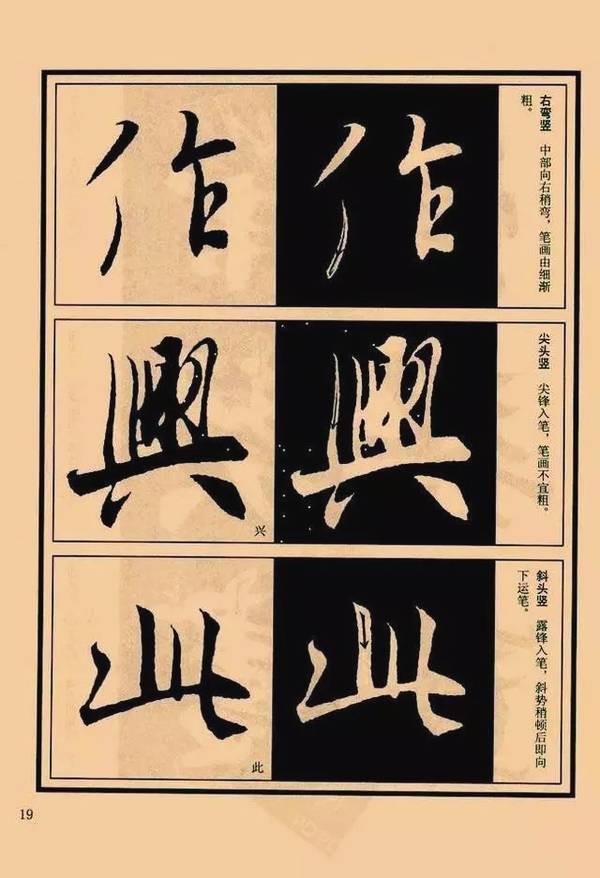 右弯竖 中部向右稍弯，笔画由细渐
粗。
作
作
尖头竖 尖锋入笔，笔画不宜粗。
興
興
兴
斜头竖 露锋入笔，斜势稍顿后即向
下运笔。
此
此
此
19